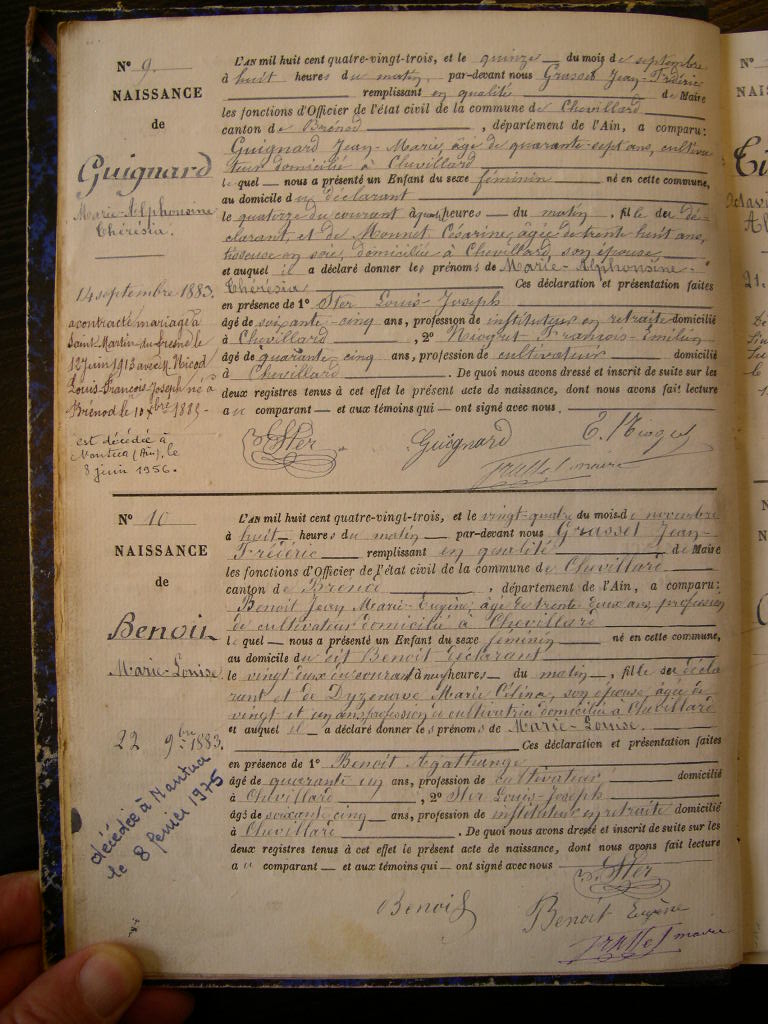 N° 9.
NAISSANCE
de
Guignard
Marie-Alphonsine
Thérésia.
14 septembre 1883.
a contracté mariage à
Saint-Martin-du-fresne le
12 juin 1913 avec M. Nicod
Louis-François-Joseph né à
Brénod le 10 Xbre 1883.
est décédée à
Nantua (Ain), le
8 juin 1956.
L'AN mil huit cent quatre-vingt-trois, et le quinze du mois de septembre
à huit heures du matin, par-devant nous Grasset Jean-Fréderic
remplissant en qualité de Maire
les fonctions d'Officier de l'état civil de la commune de Chevillard
canton de Brénod, département de l'Ain, a comparu:
Guignard Jean-Marie, âgé de quarante-sept ans, cultiva
teur domicilié à Chevillard
lequel nous a présenté un Enfant du sexe féminin né en cette commune,
au domicile du déclarant
le quatorze du courant à heures du matin, fille du dé-
clarant, et de Monnet Césarine, âgée de trente huit ans,
tisseuse en soie, domiciliée à Chevillard, son épouse,
et auquel il a déclaré donner les prénoms de Marie-Alphonsine-
Thérésia Ces déclaration et présentation faites
en présence de 1° Ster Louis-Joseph
âgé de soixante-cinq ans, profession de instituteur en retraite domicilié
à Chevillard, 2° Niogret François-Emilien
âgé de quarante cinq ans, profession de cultivateur domicilié
à Chevillard. De quoi nous avons dressé et inscrit de suite sur les
deux registres tenus à cet effet le présent acte de naissance, dont nous avons fait lecture
au comparant et aux témoins qui ont signé avec nous.
Ster Guignard E. Niogret
Grasset maire
N° 10
NAISSANCE
de
Benoit
Marie-Louise
22 9bre 1883.
décédée à Nantua
le 8 février 1975
L'AN mil huit cent quatre-vingt-trois, et le vingt-quatre du mois de novembre
à huit heures du matin par-devant nous Grasset Jean-
Fréderic remplissant en qualité de Maire
les fonctions d'Officier de l'état civil de la commune de Chevillard
canton de Brénod, département de l'Ain, a comparu:
Benoit Jean Marie-Eugène, âgé de trente deux ans, profession
de cultivateur domicilié à Chevillard
lequel nous a présenté un Enfant du sexe féminin né en cette commune,
au domicile du dit Benoit déclarant
le vingt deux du courant à neuf heures du matin, fille du décla
rant et de Marie Célina, son épouse, âgée de
vingt et un ans, profession de cultivatrice domiciliée à Chevillard
et auquel il a déclaré donner les prénoms de Marie-Louise.
Ces déclaration et présentation faites
en présence de 1° Benoit Agathange
âgé de quarante un ans, profession de cultivateur domicilié
à Chevillard, 2° Ster Louis-Joseph
âgé de soixante cinq ans, profession de instituteur en retraite domicilié
à Chevillard. De quoi nous avons dressé et inscrit de suite sur les
deux registres tenus à cet effet le présent acte de naissance, dont nous avons fait lecture
au comparant et aux témoins qui ont signé avec nous
Ster
Benoit Benoit Eugène
Grasset maire